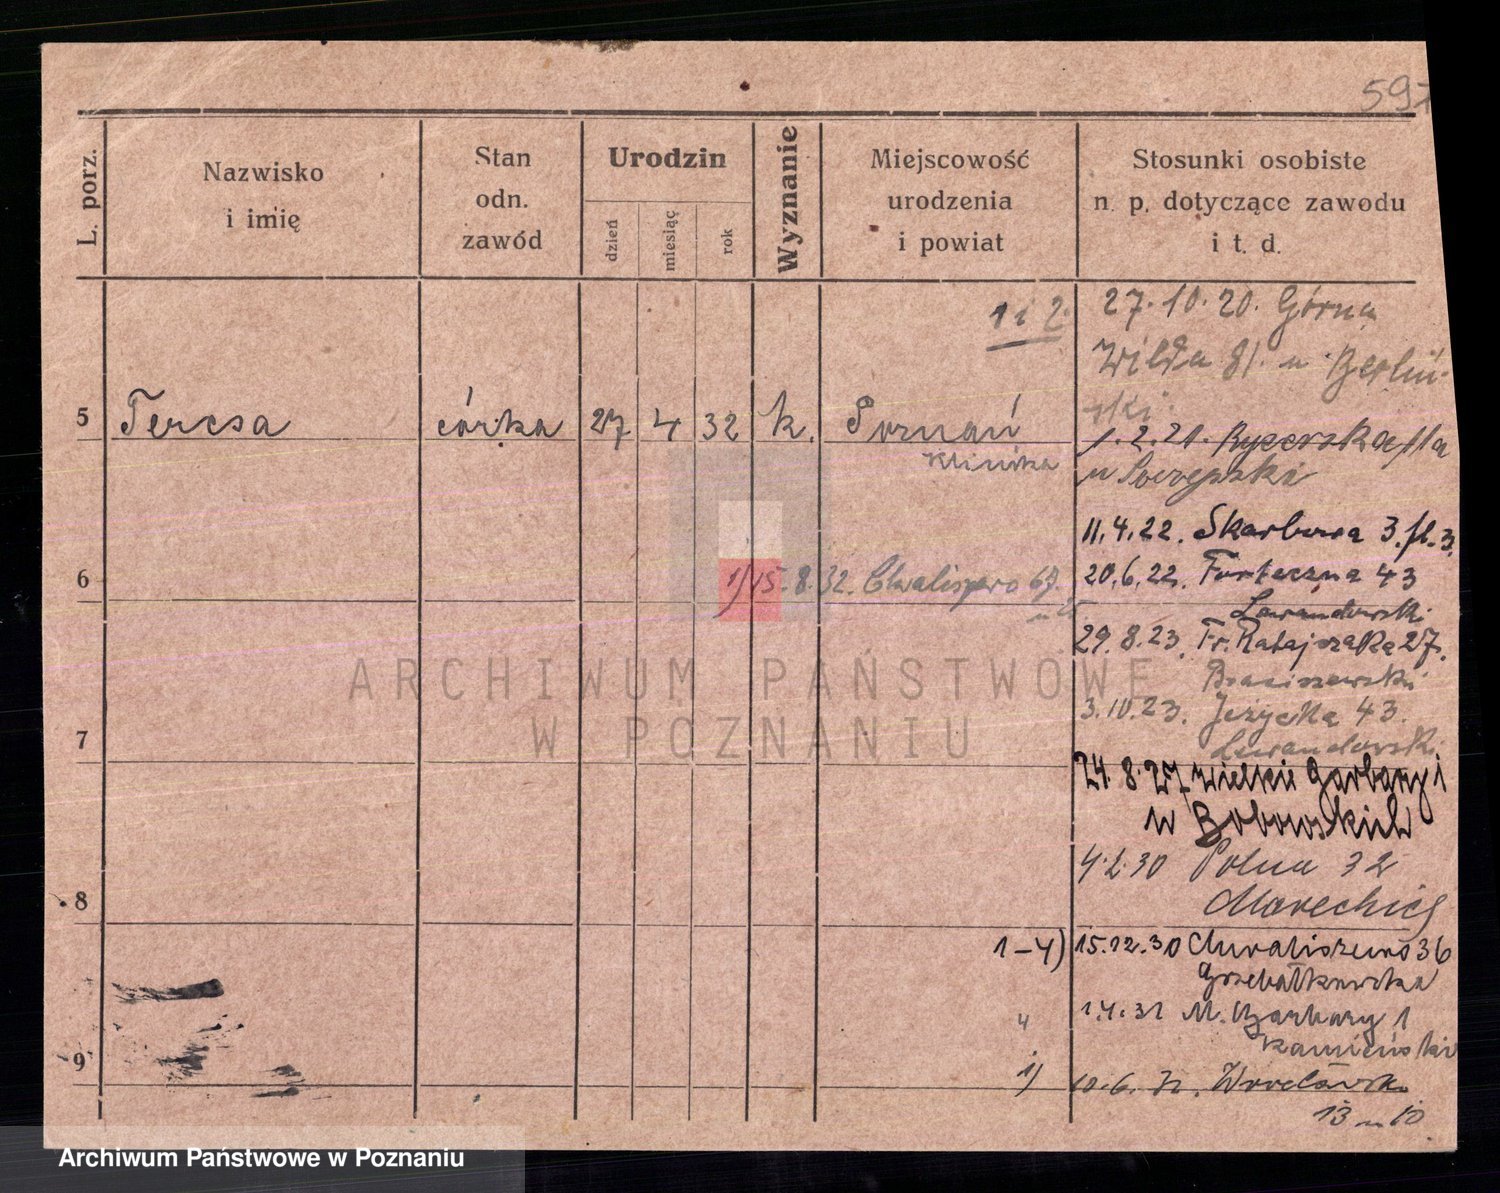 597
L. porz.
Nazwisko
i imię
Stan
odn.
zawód
Urodzin
dzień
miesiąc
rok
Wyznanie
Miejscowość
urodzenia
i powiat
Stosunki osobiste
n. p. dotyczące zawodu
i t. d.
1 i 2. 27. 10. 20. Górna
Wilda 81. u Berliń-
ski
5 Teresa córka 27 4 32 k. Poznań
klinika
1. 2. 21. Rycerska 11a
u
11. 4. 22. Skarbowa 3. pl. 3.
6 1) 15. 8. 32. Chwaliszewo 67.
20. 6. 22. Forteczna 43
Lewandowski
29. 8. 23. Fr. Ratajczaka 27.
3. 10. 23. Jeżycka 43.
Lewandowski
7
24. 8. 27 Wielkie Garbary 1
u Bobowskich
4. 2. 30 Polna 32
8
1-4) 15. 12. 30 Chwaliszewo 36
" 1. 4. 31 M. Garbary 1
Kamieński
9 1) 10. 6. 32. Wrocławska
13 u
ARCHIWUM PAŃSTWOWE
W POZNANIU
Archiwum Państwowe w Poznaniu